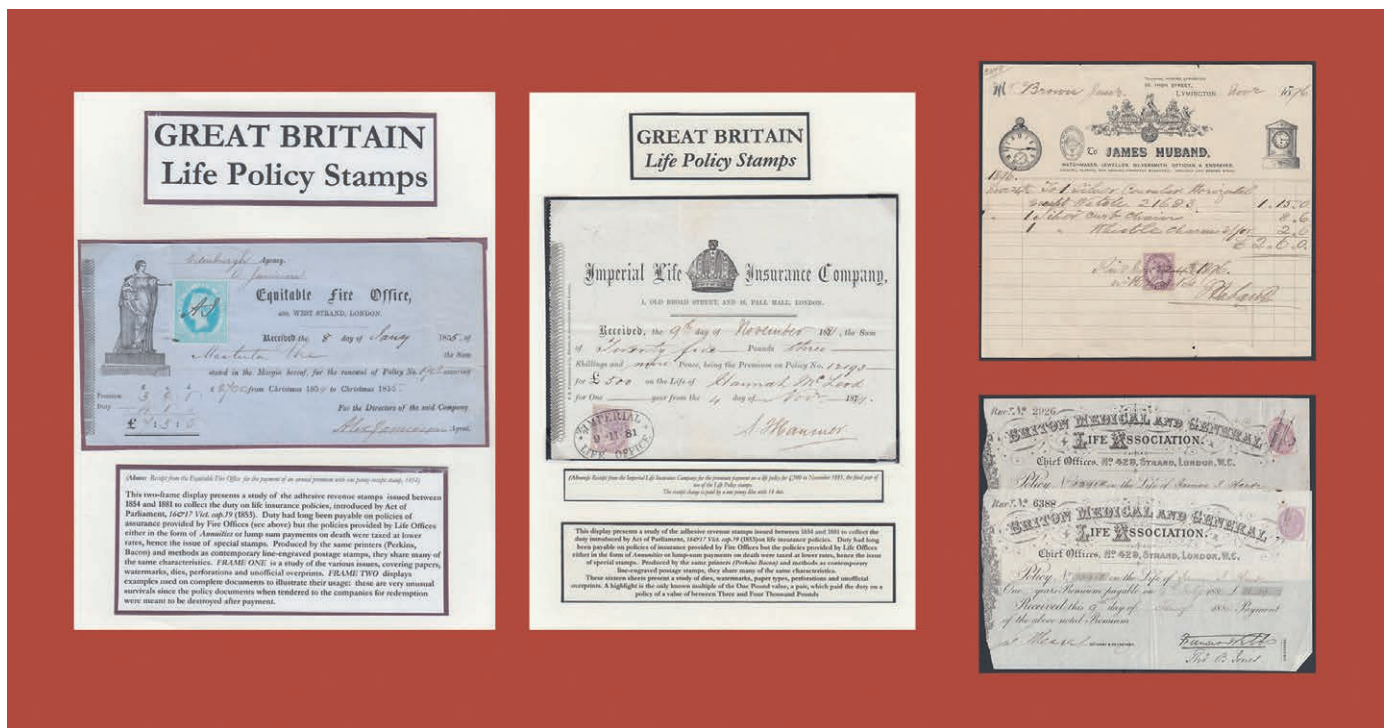 GREAT BRITAIN
Life Policy Stamps
Edinburgh Agency.
Equitable Fire Office,
WEST STRAND, LONDON.
Received the 8 day of Jany 1855 of
the Sum
stated in the Margin hereof, for the renewal of Policy No.
from Christmas 1854 to Christmas 1855.
Premium
Duty
£
For the Directors of the said Company
Alex Jamieson Agent.
(Above: Receipt from the Equitable Fire Office for the payment of an annual premium with one penny receipt stamp, 1854)
This two-frame display presents a study of the adhesive revenue stamps issued between
1854 and 1881 to collect the duty on life insurance policies, introduced by Act of
Parliament, 16&17 Vict. cap.59 (1853). Duty had long been payable on policies of
assurance provided by Fire Offices (see above) but the policies provided by Life Offices
either in the form of Annuities or lump sum payments on death were taxed at lower
rates, hence the issue of special stamps. Produced by the same printers (Perkins,
Bacon) and methods as contemporary line-engraved postage stamps, they share many of
the same characteristics. FRAME ONE is a study of the various issues, covering papers,
watermarks, dies, perforations and unofficial overprints. FRAME TWO displays
examples used on complete documents to illustrate their usage: these are very unusual
survivals since the policy documents when tendered to the companies for redemption
were meant to be destroyed after payment.
GREAT BRITAIN
Life Policy Stamps
Imperial Life Insurance Company,
1, OLD BROAD STREET, AND 16, PALL MALL, LONDON.
Received, the 9th day of November 1881, the Sum
of Twenty five Pounds three
Shillings and nine Pence, being the Premium on Policy No.
for £500 on the Life of Hannah McLeod
for One year from the 4 day of Novr 1881.
IMPERIAL
9 · 11 · 81
LIFE OFFICE
(Above): Receipt from the Imperial Life Insurance Company for the premium payment on a life policy for £500 in November 1881, the final year of
use of the Life Policy stamps.
The receipt charge is paid by a one penny lilac with 14 dots.
This display presents a study of the adhesive revenue stamps issued between 1854 and 1881 to collect the
duty introduced by Act of Parliament, 16&17 Vict. cap.59 (1853)on life insurance policies. Duty had long
been payable on policies of insurance provided by Fire Offices but the policies provided by Life Offices
either in the form of Annuities or lump-sum payments on death were taxed at lower rates, hence the issue
of special stamps. Produced by the same printers (Perkins Bacon) and methods as contemporary
line-engraved postage stamps, they share many of the same characteristics.
These sixteen sheets present a study of dies, watermarks, paper types, perforations and unofficial
overprints. A highlight is the only known multiple of the One Pound value, a pair, which paid the duty on a
policy of a value of between Three and Four Thousand Pounds
HIGH STREET,
Mr Brown LYMINGTON 1896
To JAMES HUBAND,
WATCHMAKER, JEWELLER, SILVERSMITH, OPTICIAN & ENGRAVER.
1896.
To 1 Silver
Watch 21683. 1.15.0
1 Silver curb chain 8.6
1 " Whistle Charm 2.6
£ 2.6.0.
RECT. No 2926
BRITON MEDICAL AND GENERAL
LIFE ASSOCIATION.
Chief Offices, No 429, STRAND, LONDON, W.C.
Policy No on the Life of
No 6388
BRITON MEDICAL AND GENERAL
LIFE ASSOCIATION.
Chief Offices, No 429, STRAND, LONDON, W.C.
Policy No on the Life of
One years Premium payable on
Received this 9th day of Payment
of the above noted Premium.